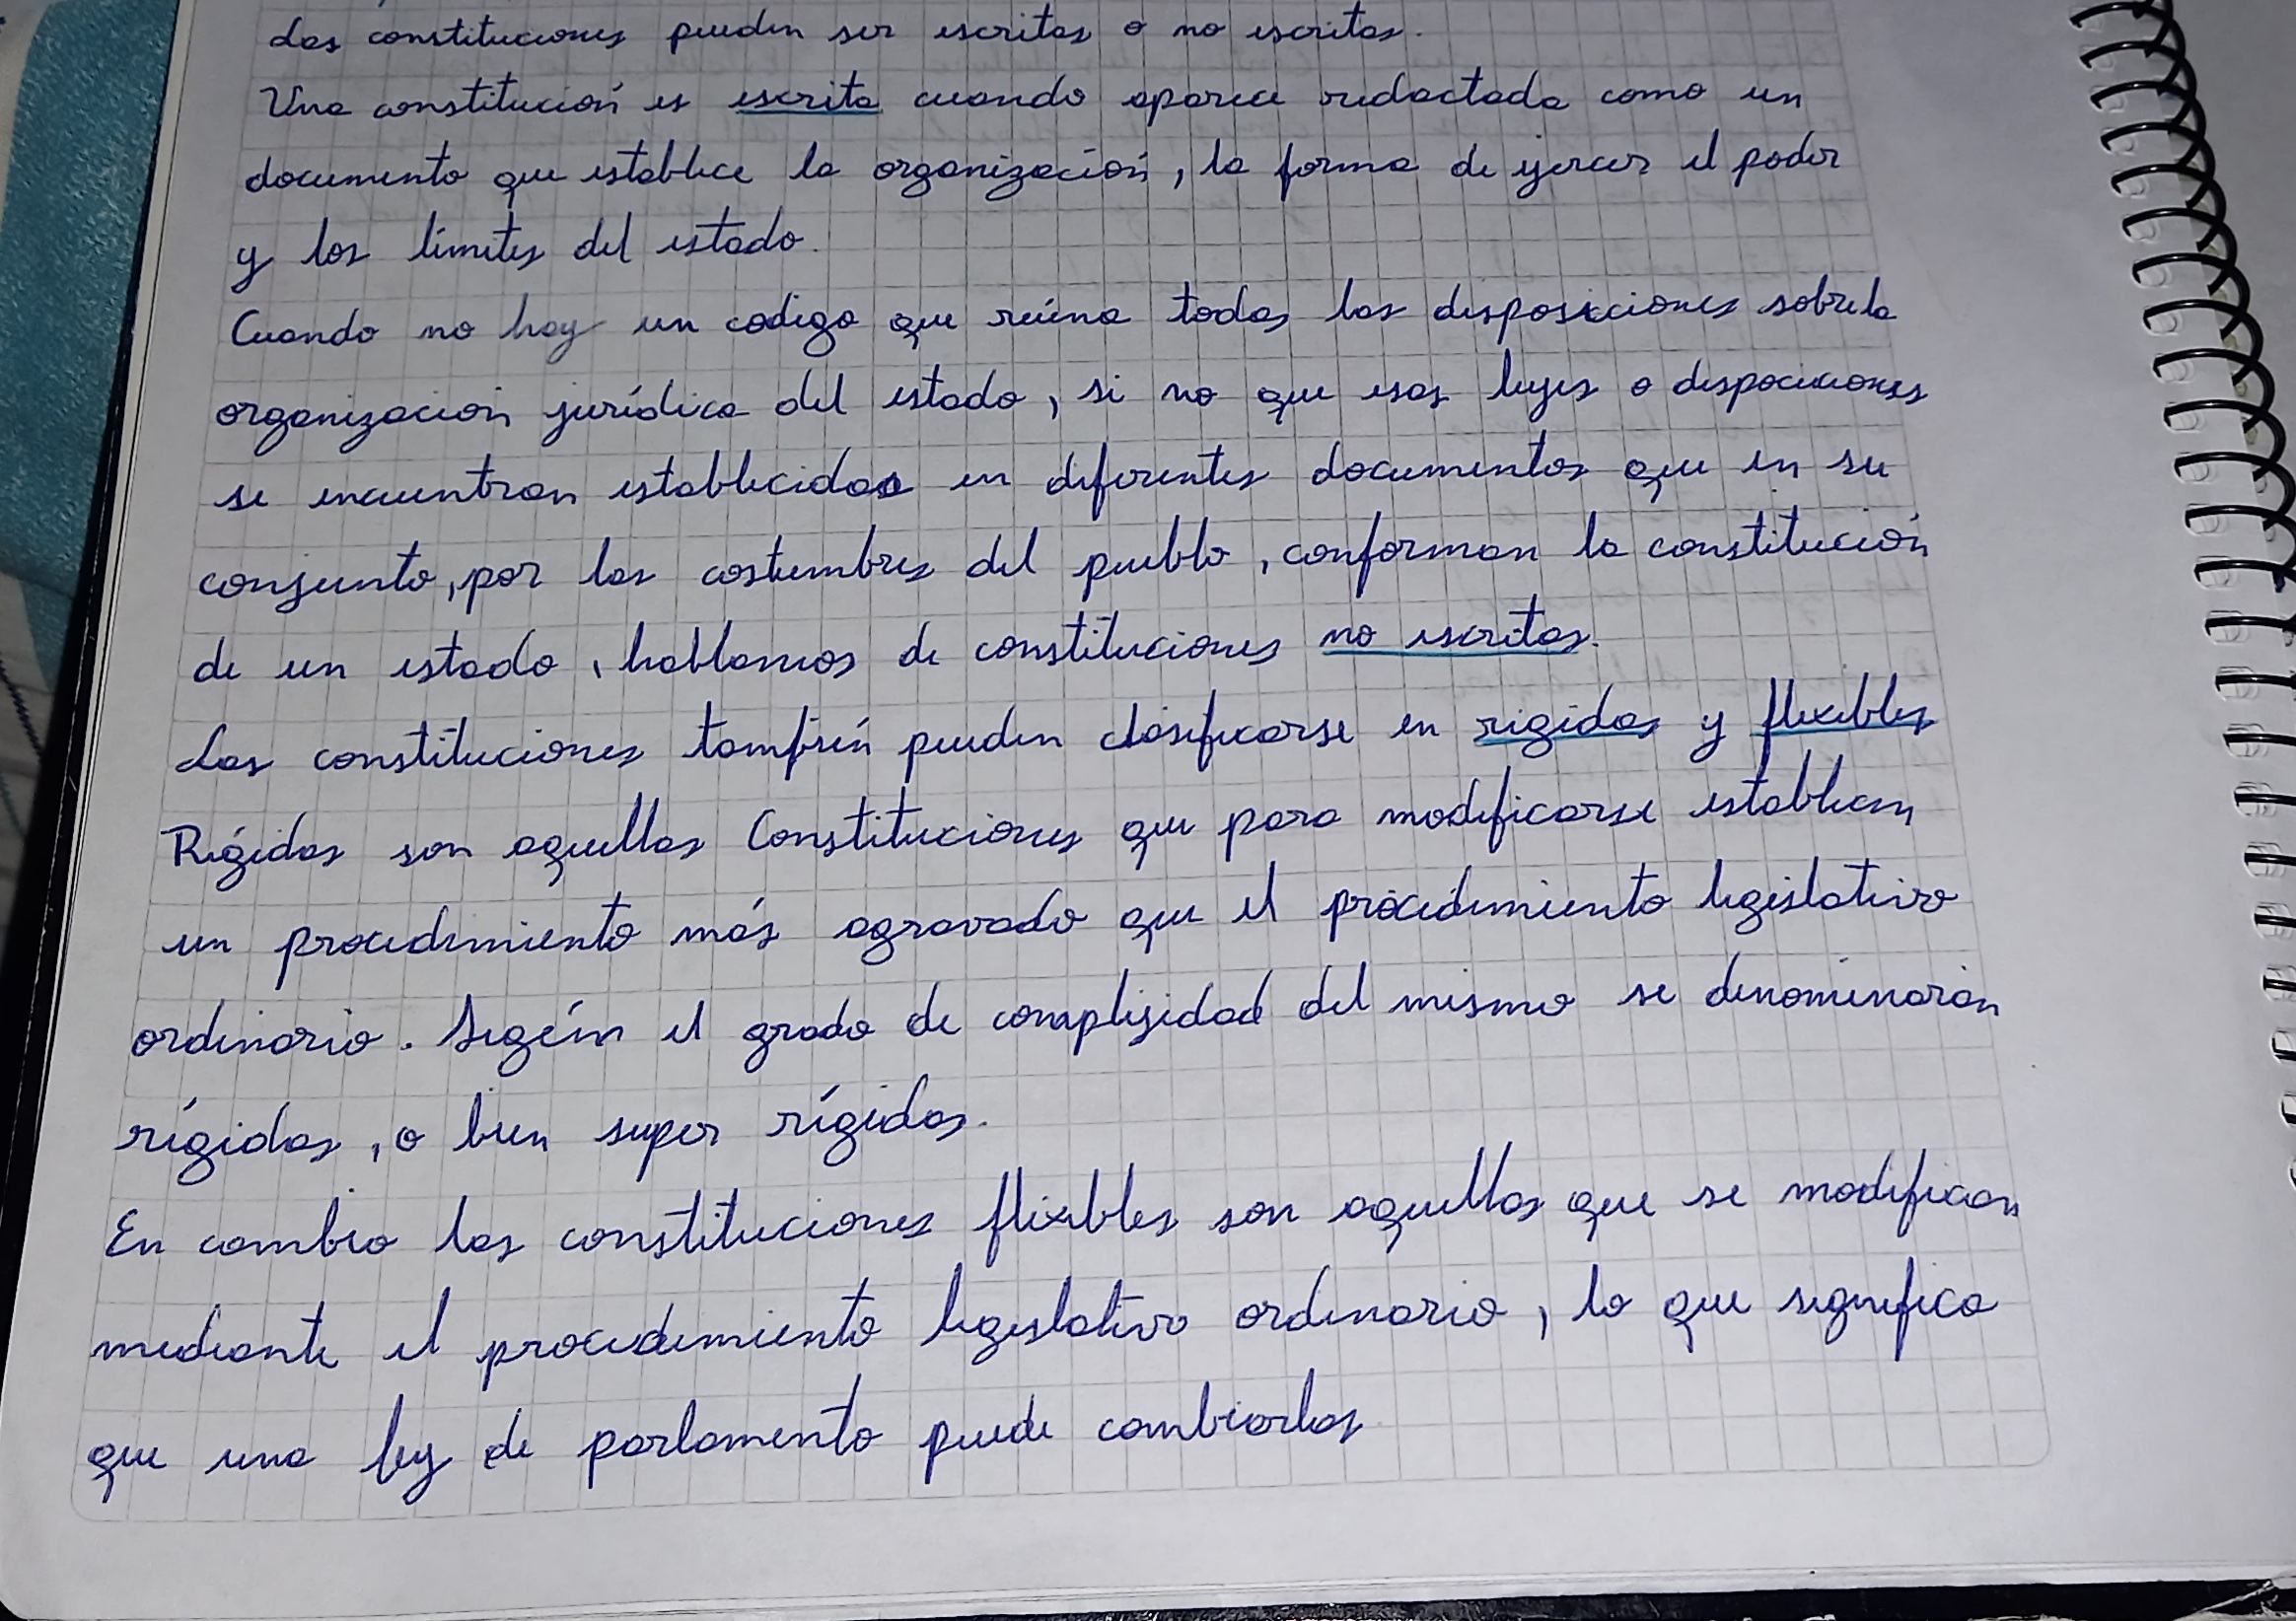 Las constituciones pueden ser escritas o no escritas.
Una constitución es escrita cuando aparece redactada como un
documento que establece la organización, la forma de ejercer el poder
y los límites del estado.
Cuando no hay un codigo que reúna todas las disposiciones sobre la
organización jurídica del estado, si no que esas leyes o dispociciones
se encuentran establecidas en diferentes documentos que en su
conjunto, por las costumbres del pueblo, conforman la constitución
de un estado, hablamos de constituciones no escritas.
Las constituciones también pueden clasificarse en rigidas y flexibles
Rígidas son aquellas Constituciones que para modificarse establecen
un procedimiento más agravado que el procedimiento legislativo
ordinario. Según el grado de complejidad del mismo se denominarán
rígidas, o bien super rígidas.
En cambio las constituciones flexibles son aquellas que se modifican
mediante el procedimiento legislativo ordinario, lo que significa
que una ley de parlamento puede cambiarlas